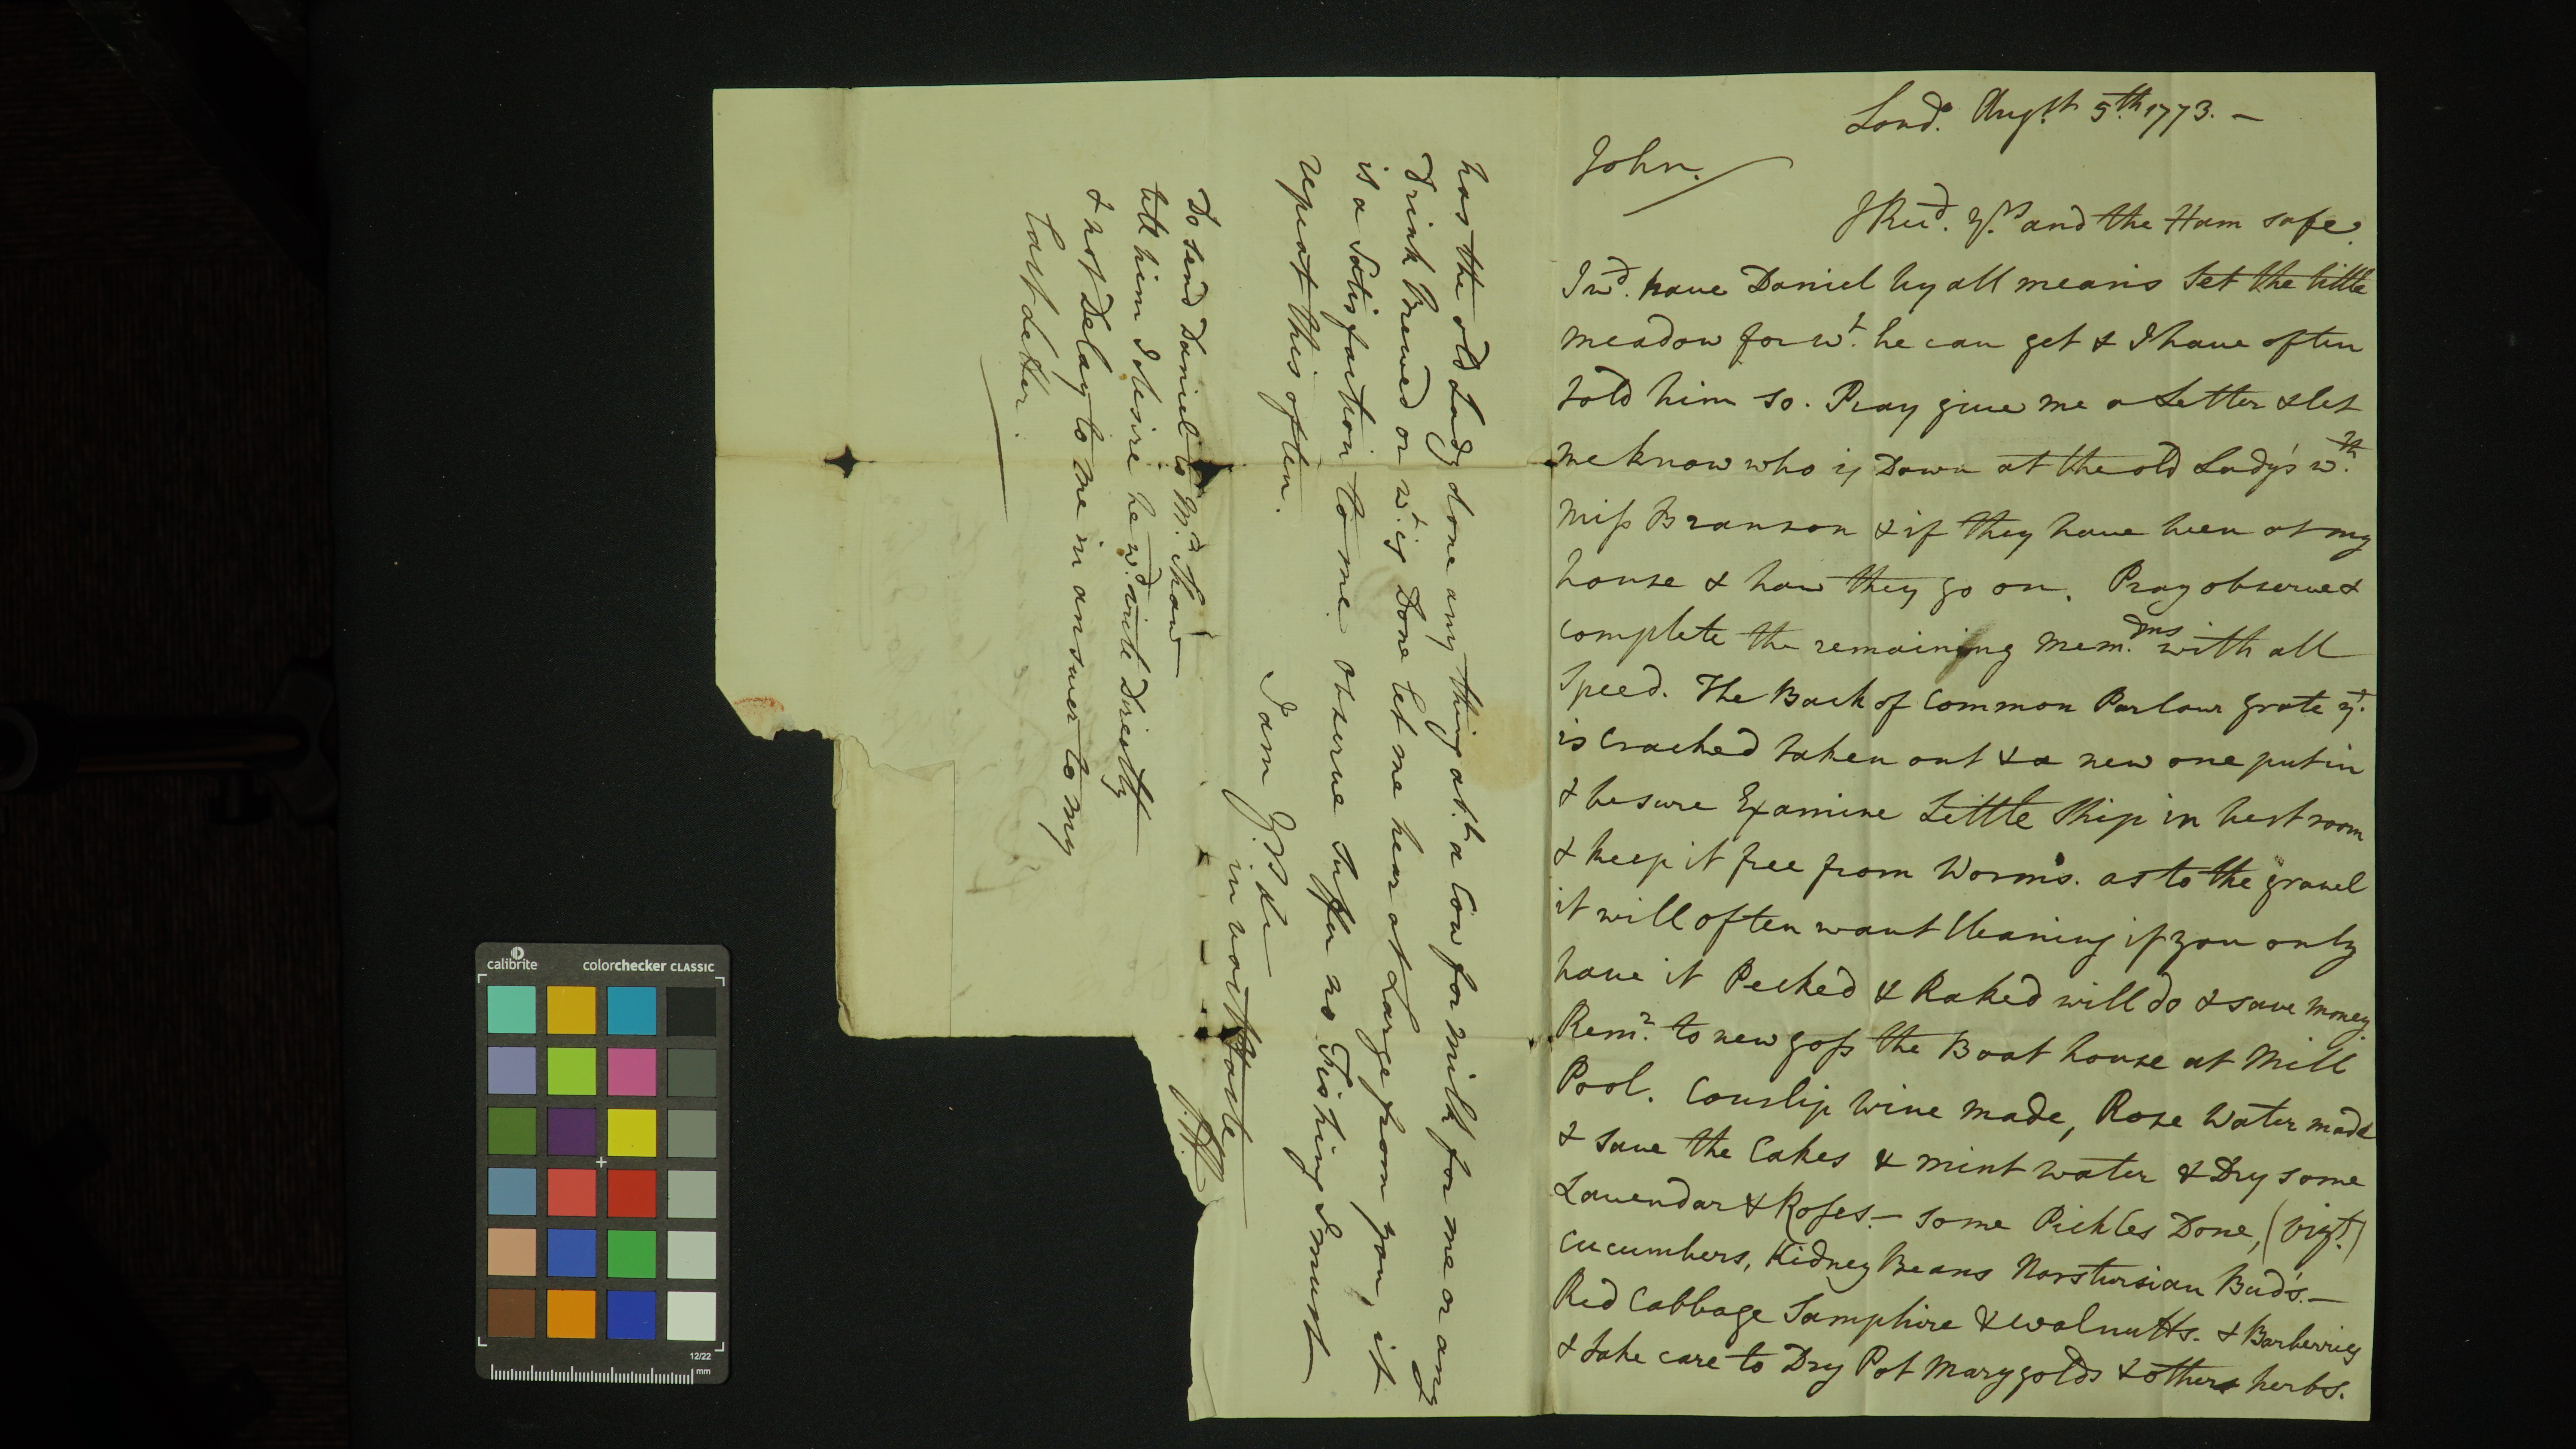 Lond. Augst. 5th. 1773. —
John.
I Recd. yrs. and the Ham safe.
I wd. have Daniel by all means Let the little
meadow for wt. he can get & I have often
told him so. Pray give me a Letter & let
me know who is Down at the old Lady's wth.
Miss Branson & if they have been at my
house & how they go on. Pray observe &
complete the remaining Mem.dms with all
Speed. The Back of Common Parlour grate yt.
is Cracked taken out & a new one put in
& be sure Examine Little Ship in best room
& keep it free from Worms. as to the gravel
it will often want Cleaning if you only
have it Pecked & Raked will do & save money
Remr. to new goss the Boat house at Mill
Pool. Couslip wine made, Rose Water made
& save the Cakes & mint water & Dry some
Lavendar & Roses. — some Pickles Done, (vizt.)
Cucumbers, Kidney Beans Norstursian Bud's. —
Red Cabbage Samphire & walnutts. & Barberries
& take care to Dry Pot Marygolds & others herbs.
has the old Lady done any thing abt. a Cow for milk for me or any
Drink Brewed or wt. is Done let me hear at Large from you, it
is a Satisfaction to me. Observe Suffer no Fishing I must
repeat this often.
I am Yrs &c
in vast haste
Do send Daniel to Mr. Shaw
tell him I desire he wd. write Directly
& not Delay to me in answer to my
Last letter.
calibrite
colorchecker CLASSIC
12/22
mm